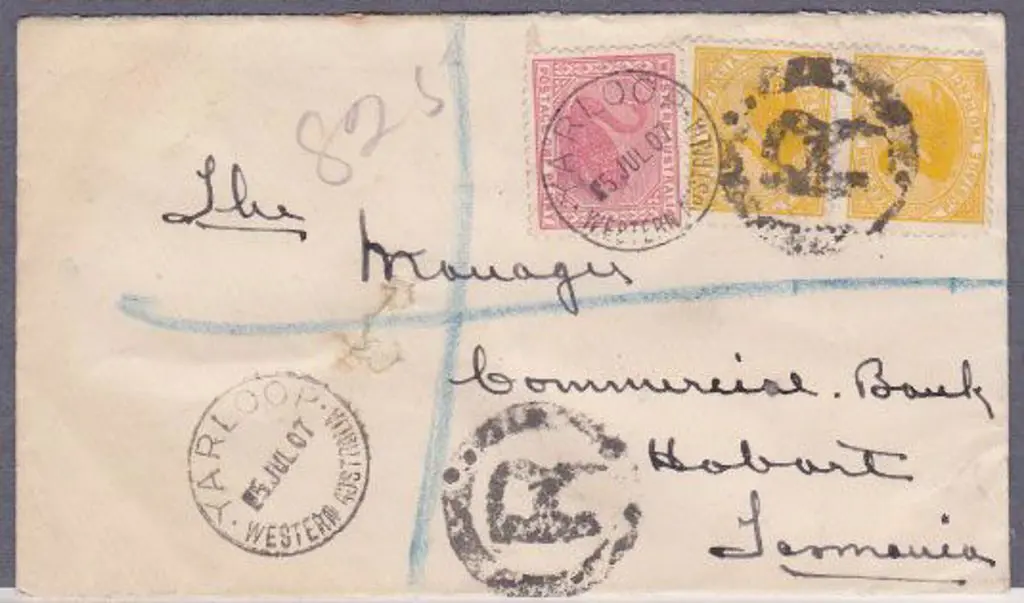 825
WESTERN AUSTRALIA
POSTAGE
YARLOOP
5 JUL 07
WESTERN AUSTRALIA
R
The
Manager
Commercial. Bank
Hobart
Tasmania
YARLOOP
5 JUL 07
WESTERN AUSTRALIA
R